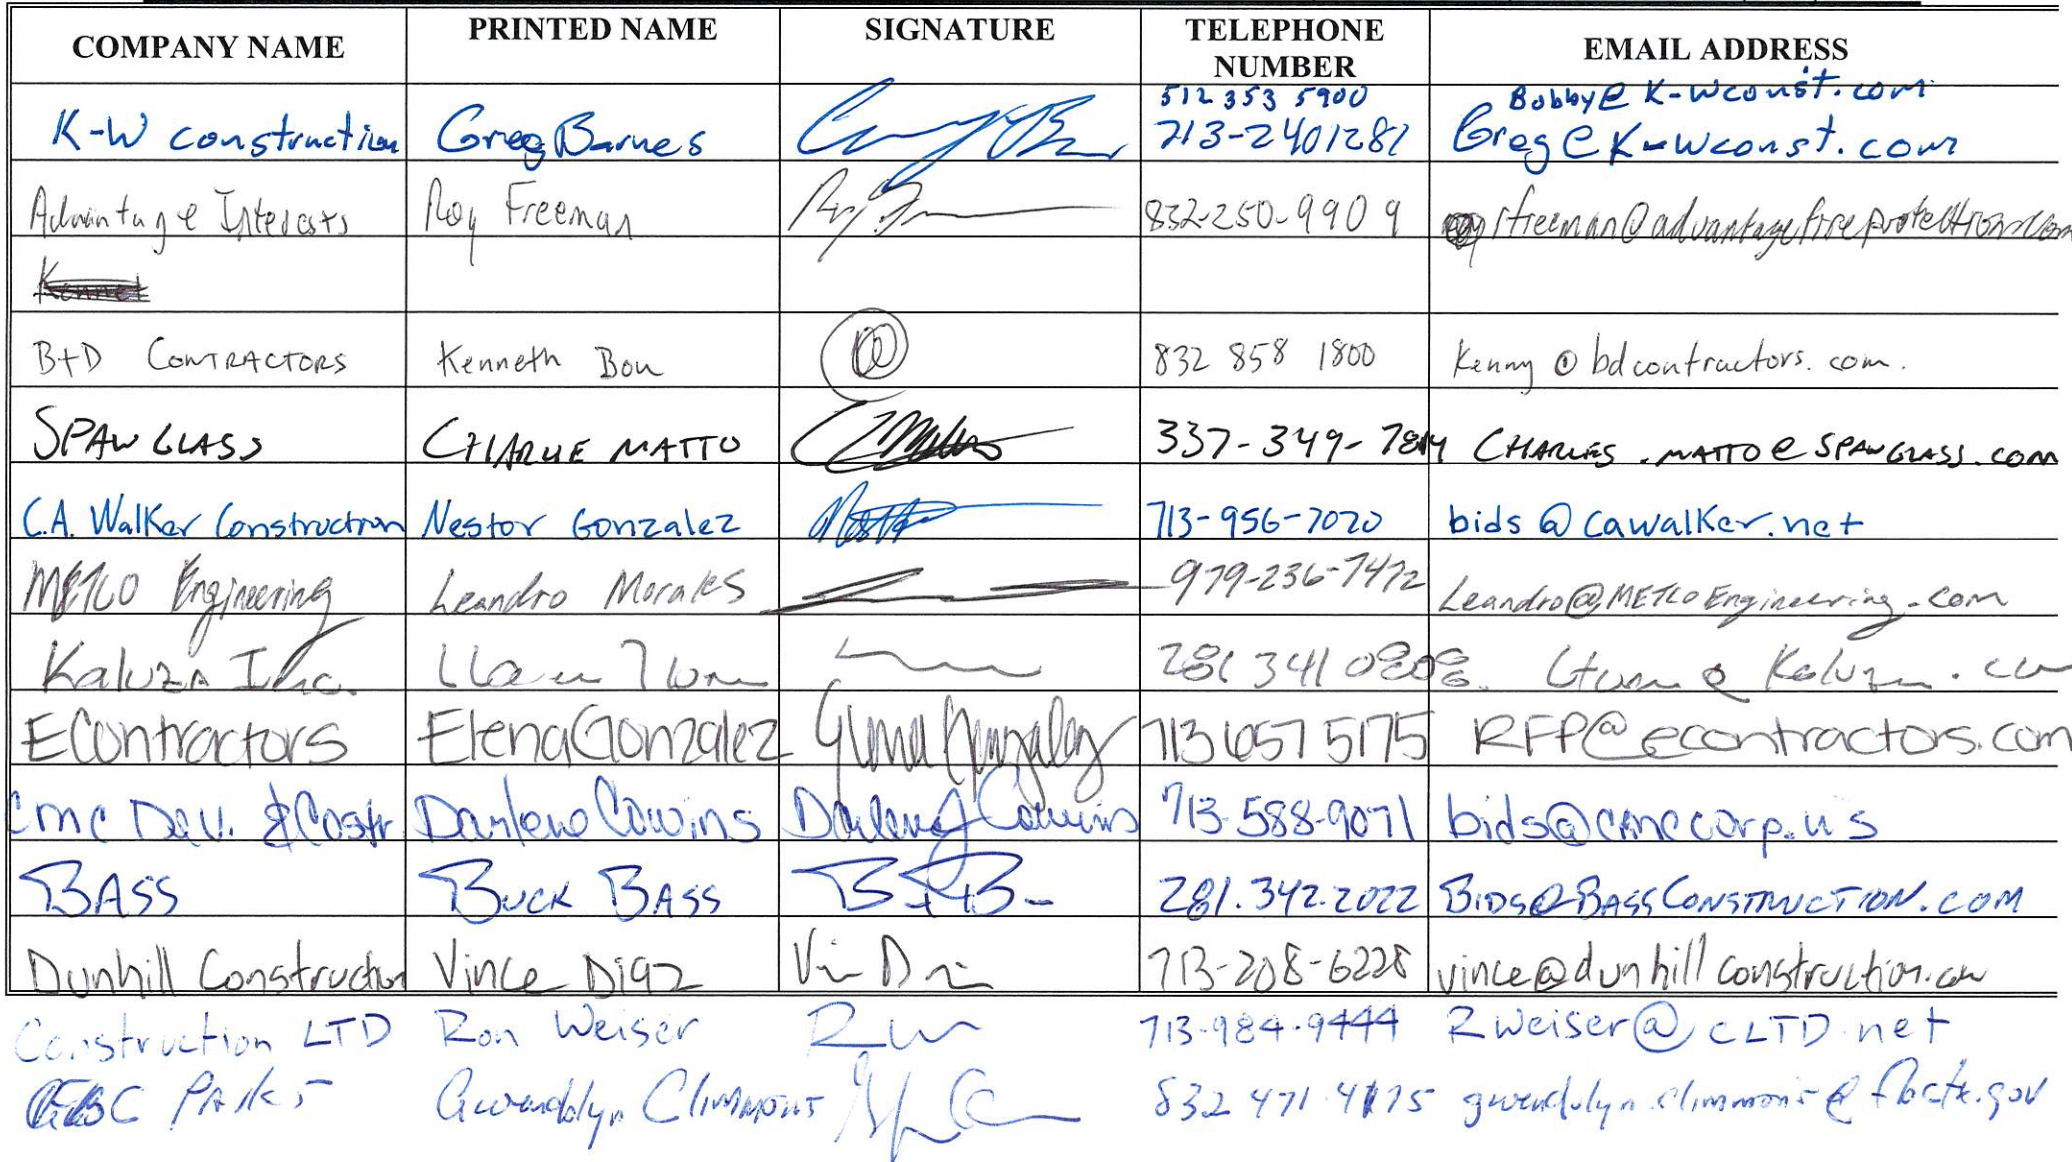 COMPANY NAME PRINTED NAME SIGNATURE TELEPHONE NUMBER EMAIL ADDRESS
512 353 5900 Bobby@K-Wconst.com
K-W construction Greg Barnes 713-2401281 Greg@K-Wconst.com
Advantage Interests Roy Freeman 832-250-9909 rfreeman@advantagefireprotection.com
B+D CONTRACTORS Kenneth Bou 832 858 1800 Kenny@bdcontractors.com.
SPAWGLASS CHARLIE MATTO 337-349- CHARLES.MATTO@SPAWGLASS.COM
C.A. Walker Construction Nestor Gonzalez 713-956-7020 bids@cawalker.net
METCO Engineering Leandro Morales 979-236-7472 Leandro@METCOEngineering.com
Kaluza Inc. 281 341
EContractors Elena Gonzalez Elena Gonzalez 713 657 5175 RFP@econtractors.com
CMC Dev. & Costr Darlene Cowins Darlene J Cowins 713-588-9071 bids@cmccorp.us
BASS BUCK BASS 281.342.2022 BIDS@BASSCONSTRUCTION.COM
Dunhill Construction Vince Diaz 713-208-6228 vince@dunhillconstruction.com
Construction LTD Ron Weiser 713-984-9444 Rweiser@CLTD.net
FBC PARKS Gwendolyn Climmons 832 471 4175 gwendolyn.climmons@fbctx.gov